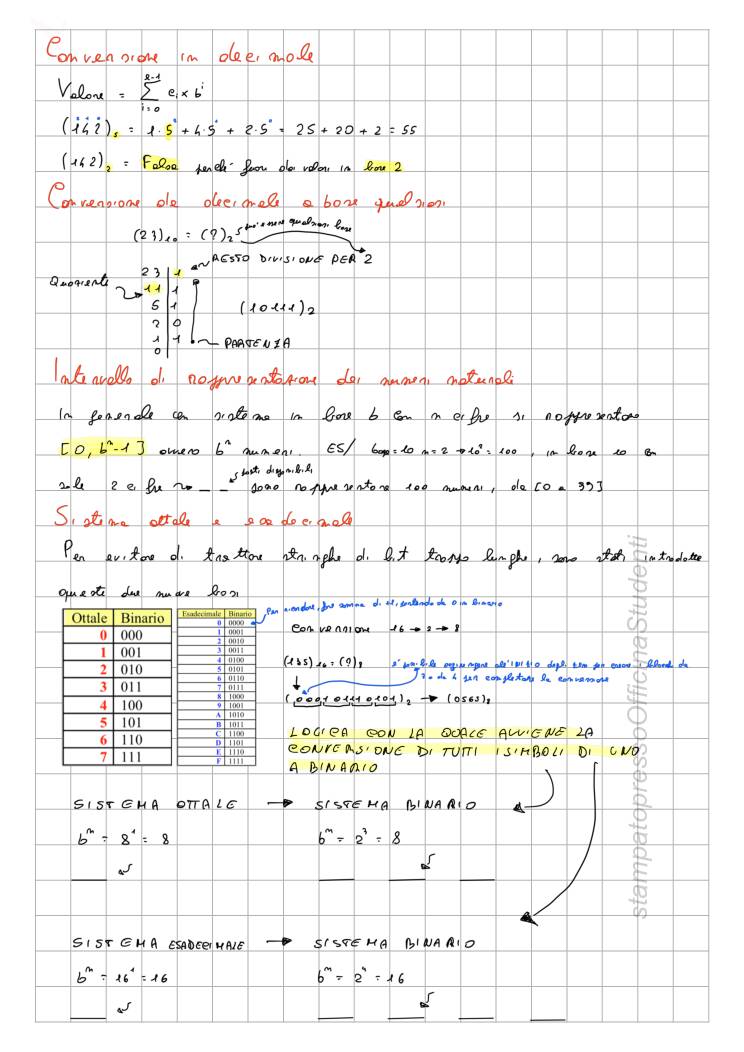 Conversione in decimale
Valore = Σ_{i=0}^{l-1} c_i x b^i
(142)₅ = 1·5² + 4·5¹ + 2·5⁰ = 25 + 20 + 2 = 55
(142)₂ = Falso perché fuori dai valori in base 2
Conversione da decimale a base qualsiasi
(23)₁₀ = (?)₂ può essere qualsiasi base
23 | 1 RESTO DIVISIONE PER 2
Quoziente 11 | 1
5 | 1 (10111)₂
2 | 0
1 | 1 PARTENZA
0
Intervallo di rappresentazione dei numeri naturali
In generale con sistema in base b con n cifre si rappresentano
[0, bⁿ-1] ovvero bⁿ numeri. ES/ base=10 n=2 → 10² = 100, in base 10 con
posti disponibili
sole 2 cifre _ _ sono rappresentare 100 numeri, da [0 a 99]
Sistema ottale e esadecimale
Per evitare di trattare stringhe di bit troppo lunghe, sono stati introdotte
queste due nuove basi
Ottale Binario
0 000
1 001
2 010
3 011
4 100
5 101
6 110
7 111
Esadecimale Binario
0 0000
1 0001
2 0010
3 0011
4 0100
5 0101
6 0110
7 0111
8 1000
9 1001
A 1010
B 1011
C 1100
D 1101
E 1110
F 1111
Per scendere, fare somma di +1, partendo da 0 in binario
Conversione 16 → 2 → 8
(1 5)₁₆ = (?)₈
è possibile aggiungere all'INIZIO degli zeri per creare blocchi da
3 o da 4 per completare la conversione
(000101110101)₂ → (0565)₈
LOGICA CON LA QUALE AVVIENE LA
CONVERSIONE DI TUTTI I SIMBOLI DI UNO
A BINARIO
SISTEMA OTTALE → SISTEMA BINARIO
bⁿ = 8¹ = 8 bⁿ = 2³ = 8
SISTEMA ESADECIMALE → SISTEMA BINARIO
bⁿ = 16¹ = 16 bⁿ = 2⁴ = 16
stampatopressoOfficinaStudenti